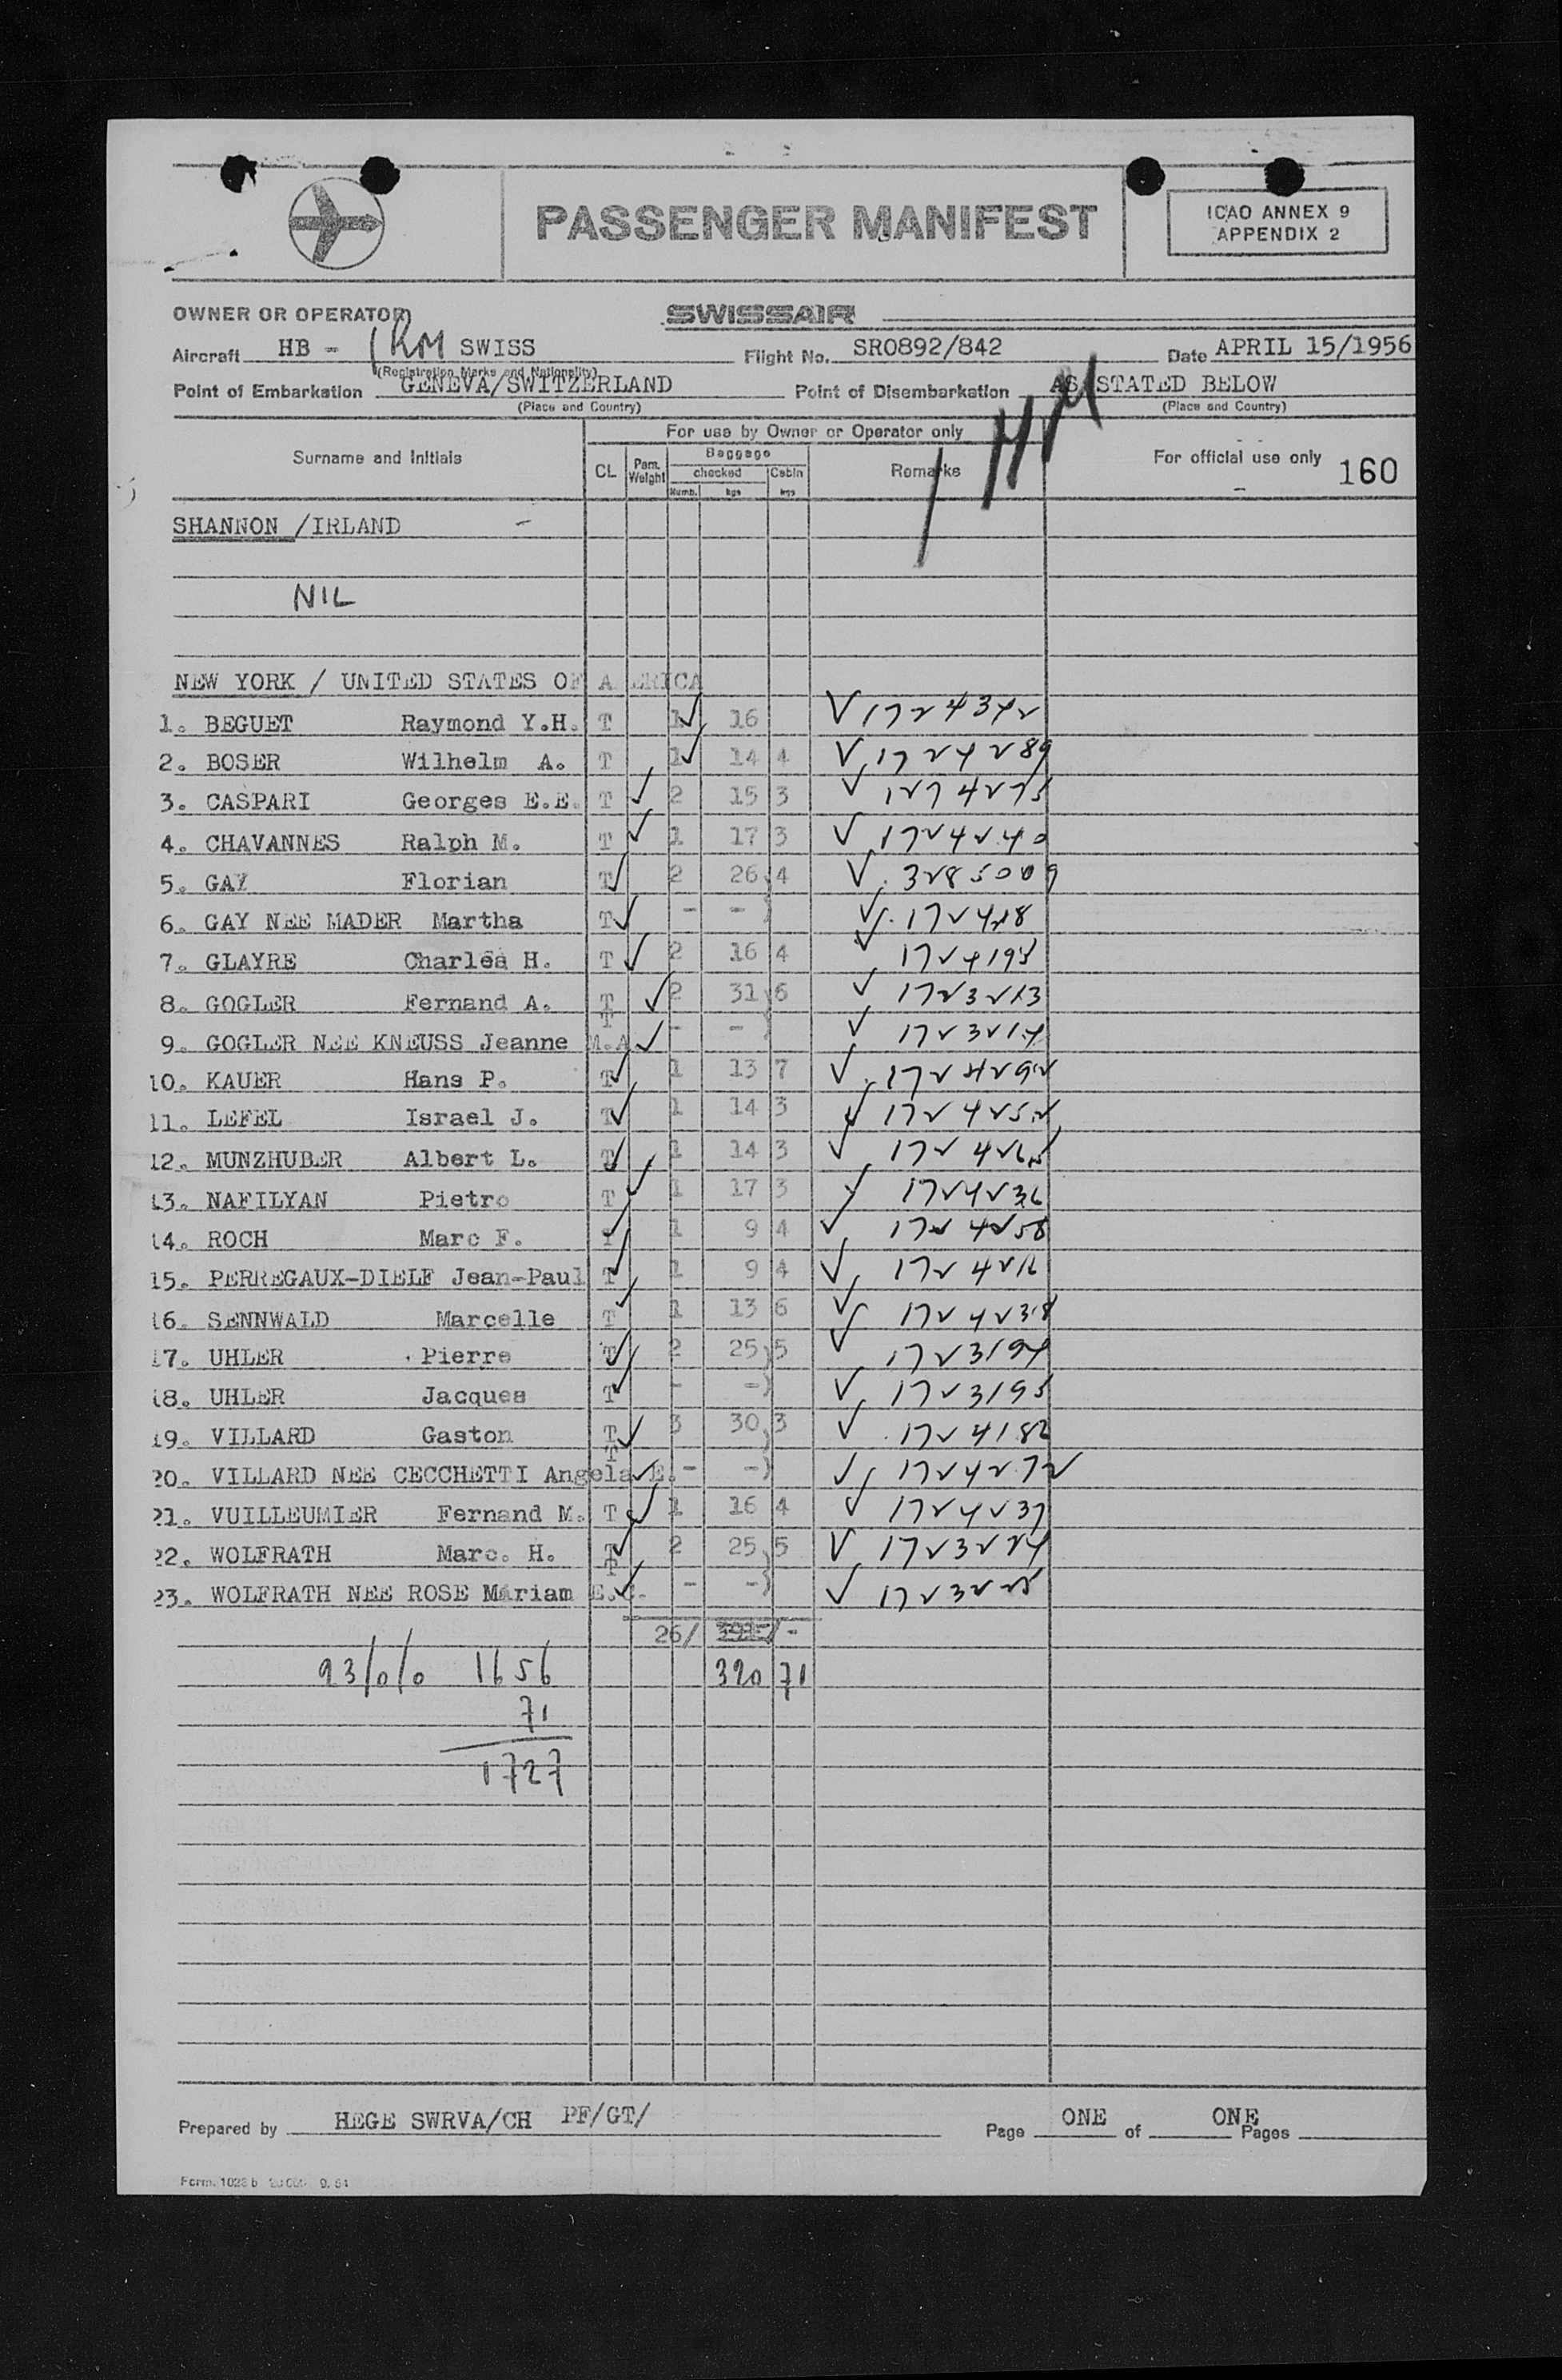 PASSENGER MANIFEST
ICAO ANNEX 9
APPENDIX 2
OWNER OR OPERATOR SWISSAIR
Aircraft HB - SWISS Flight No. SR0892/842 Date APRIL 15/1956
(Registration Marks and Nationality)
Point of Embarkation GENEVA/SWITZERLAND Point of Disembarkation AS STATED BELOW
(Place and Country) (Place and Country)
For use by Owner or Operator only
Surname and Initials CL Pam. Weight Baggage checked Numb. kgs Cabin kgs Remarks For official use only 160
SHANNON /IRLAND -
NIL
NEW YORK / UNITED STATES OF AMERICA
1. BEGUET Raymond Y.H. T 1 16
2. BOSER Wilhelm A. T 1 14 4 1724289
3. CASPARI Georges E.E. T 2 15 3
4. CHAVANNES Ralph M. T 1 17 3 1724240
5. GAY Florian T 2 26 4 3285009
6. GAY NEE MADER Martha T - -
7. GLAYRE Charles H. T 2 16 4 1724195
8. GOGLER Fernand A. T 2 31 6 1723213
9. GOGLER NEE KNEUSS Jeanne M.A. T - - 1723214
10. KAUER Hans P. T 1 13 7 1724292
11. LEFEL Israel J. T 1 14 3 1724252
12. MUNZHUBER Albert L. T 1 14 3
13. NAFILYAN Pietro T 1 17 3 1724236
14. ROCH Marc F. T 1 9 4 1724258
15. PERREGAUX-DIELF Jean-Paul T 1 9 4
16. SENNWALD Marcelle T 1 13 6 1724238
17. UHLER Pierre T 2 25 5 1723194
18. UHLER Jacques T - - 1723195
19. VILLARD Gaston T 3 30 3 1724182
20. VILLARD NEE CECCHETTI Angela E. T - - 1724272
21. VUILLEUMIER Fernand M. T 1 16 4 1724237
22. WOLFRATH Marc. H. T 2 25 5 1723224
23. WOLFRATH NEE ROSE Mariam T - - 1723225
26/ /-
23/0/0 1656 320 71
71
1727
Prepared by HEGE SWRVA/CH PF/GT/ Page ONE of ONE Pages
Form. 1023 b